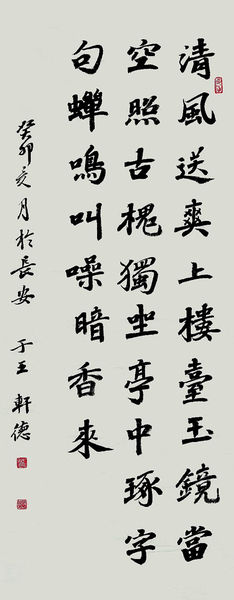 清風送爽上樓臺玉鏡當
空照古槐獨坐亭中琢字
句蟬鳴叫噪暗香來
癸卯亥月於長安 于王軒德